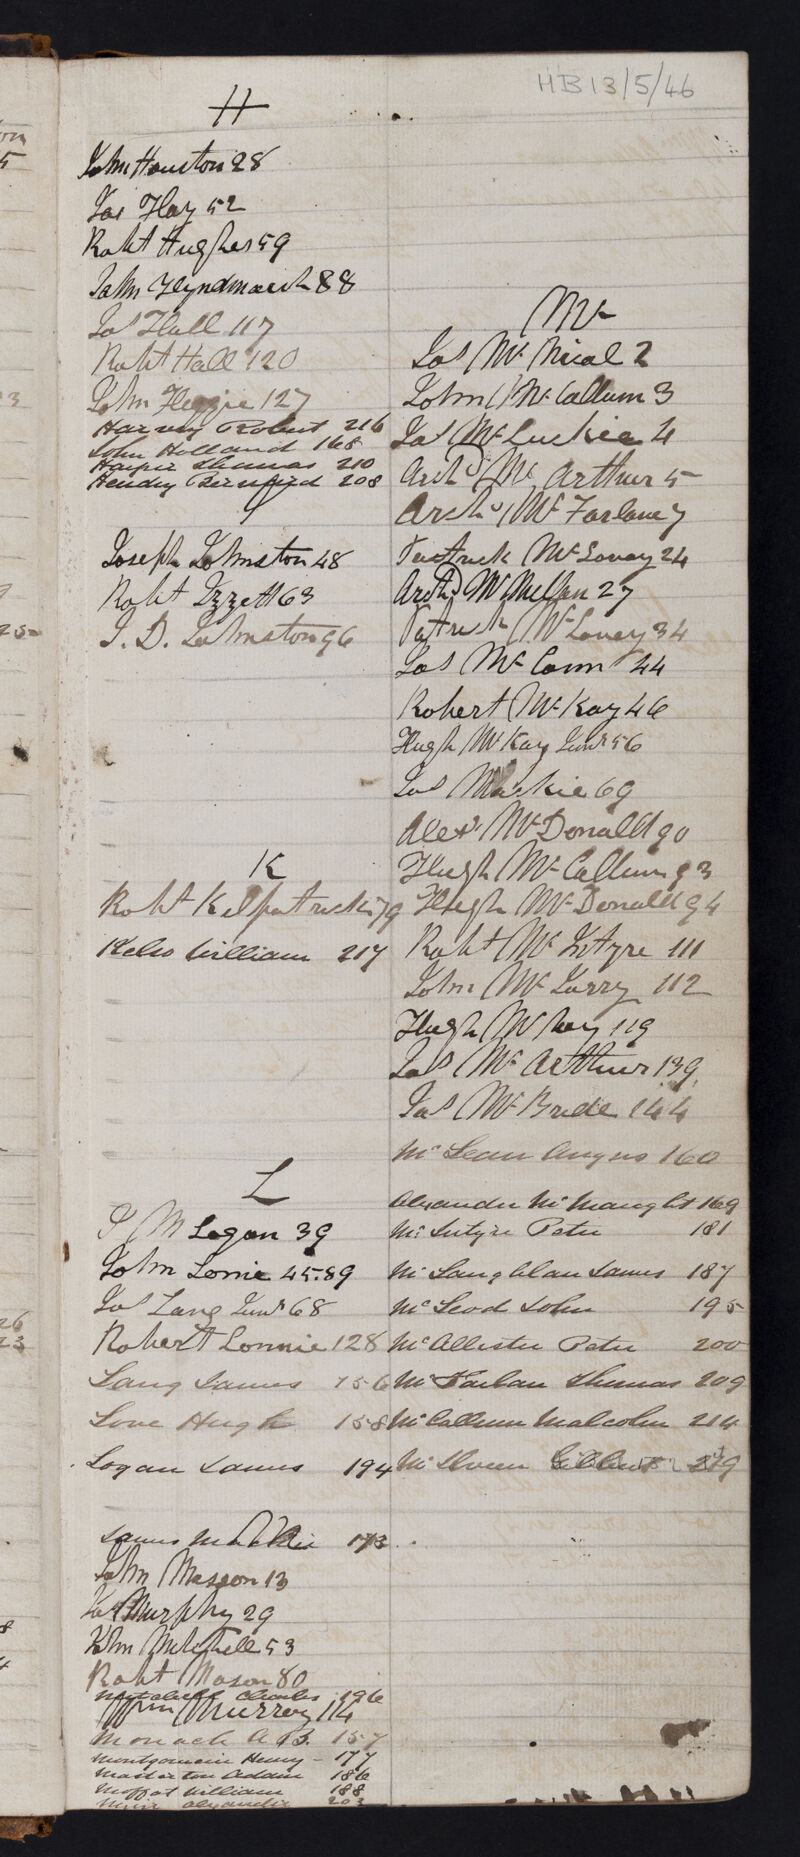 HB13/5/46
H
John Houston 28
Jas Hay 52
Robt Hughes 59
John Hyndmarsh 88
Jas Hall 117
Robt Hall 120
John Heggie 127
Harvey Robert 216
John Holland 168
Harper Thomas 210
Hendry Bernard 208
Joseph Johnston 48
Robt Izzett 63
J. D. Johnston 96
K
Robt Kilpatrick 79
Kelso William 217
L
J M Logan 39
John Lorrie 45.89
Jas Lang Junr 68
Robert Lonnie 128
Lang James 156
Love Hugh 158
Logan James 194
James 173
John Masson 13
Jas Murphy 29
John Mitchell 53
Robt Mason 80
Charles 196
Wm Murray 114
Monach A B. 157
Montgomerie Henry - 177
Masterton Adam 186
Moffat William 188
Muir Alexander 203
Mc
Jas Mc Nical 2
John Mc Callum 3
Jas Mc Luckie 4
Archd Mc Arthur 5
Archd Mc Farlane 7
Patrick Mc Lavey 24
Archd Mc Millan 27
Patrick Mc Lavey 34
Jas Mc Cann 44
Robert Mc Kay 46
Hugh Mc Kay Junr 56
Jas Mackie 69
Alexr Mc Donald 90
Hugh Mc Callum 93
Hugh Mc Donald 94
Robt Mc Intyre 111
John Mc Lurry 112
Hugh Mc 119
Jas Mc Arthur 139
Jas Mc Bride 144
Mc Lean Angus 160
Alexander Mc Naught 169
Mc Intyre Peter 181
Mc Lauchlan James 187
Mc Leod John 195
Mc Allister Peter 200
Mc Farlan Thomas 209
Mc Callum Malcolm 214
Mc Ilveen Gilbert 219